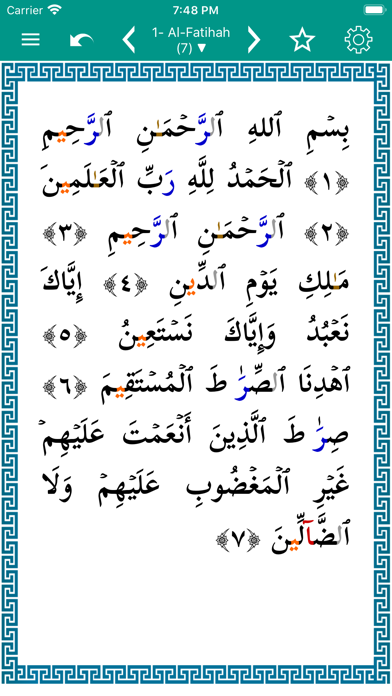 Carrier 7:48 PM
1- Al-Fatihah
(7) ▼
بِسْمِ ٱللهِ ٱلرَّحْمَـٰنِ ٱلرَّحِيمِ
﴿١﴾ ٱلْحَمْدُ لِلَّهِ رَبِّ ٱلْعَـٰلَمِينَ
﴿٢﴾ ٱلرَّحْمَـٰنِ ٱلرَّحِيمِ ﴿٣﴾
مَـٰلِكِ يَوْمِ ٱلدِّينِ ﴿٤﴾ إِيَّاكَ
نَعْبُدُ وَإِيَّاكَ نَسْتَعِينُ ﴿٥﴾
ٱهْدِنَا ٱلصِّرَٰطَ ٱلْمُسْتَقِيمَ ﴿٦﴾
صِرَٰطَ ٱلَّذِينَ أَنْعَمْتَ عَلَيْهِمْ
غَيْرِ ٱلْمَغْضُوبِ عَلَيْهِمْ وَلَا
ٱلضَّآلِّينَ ﴿٧﴾